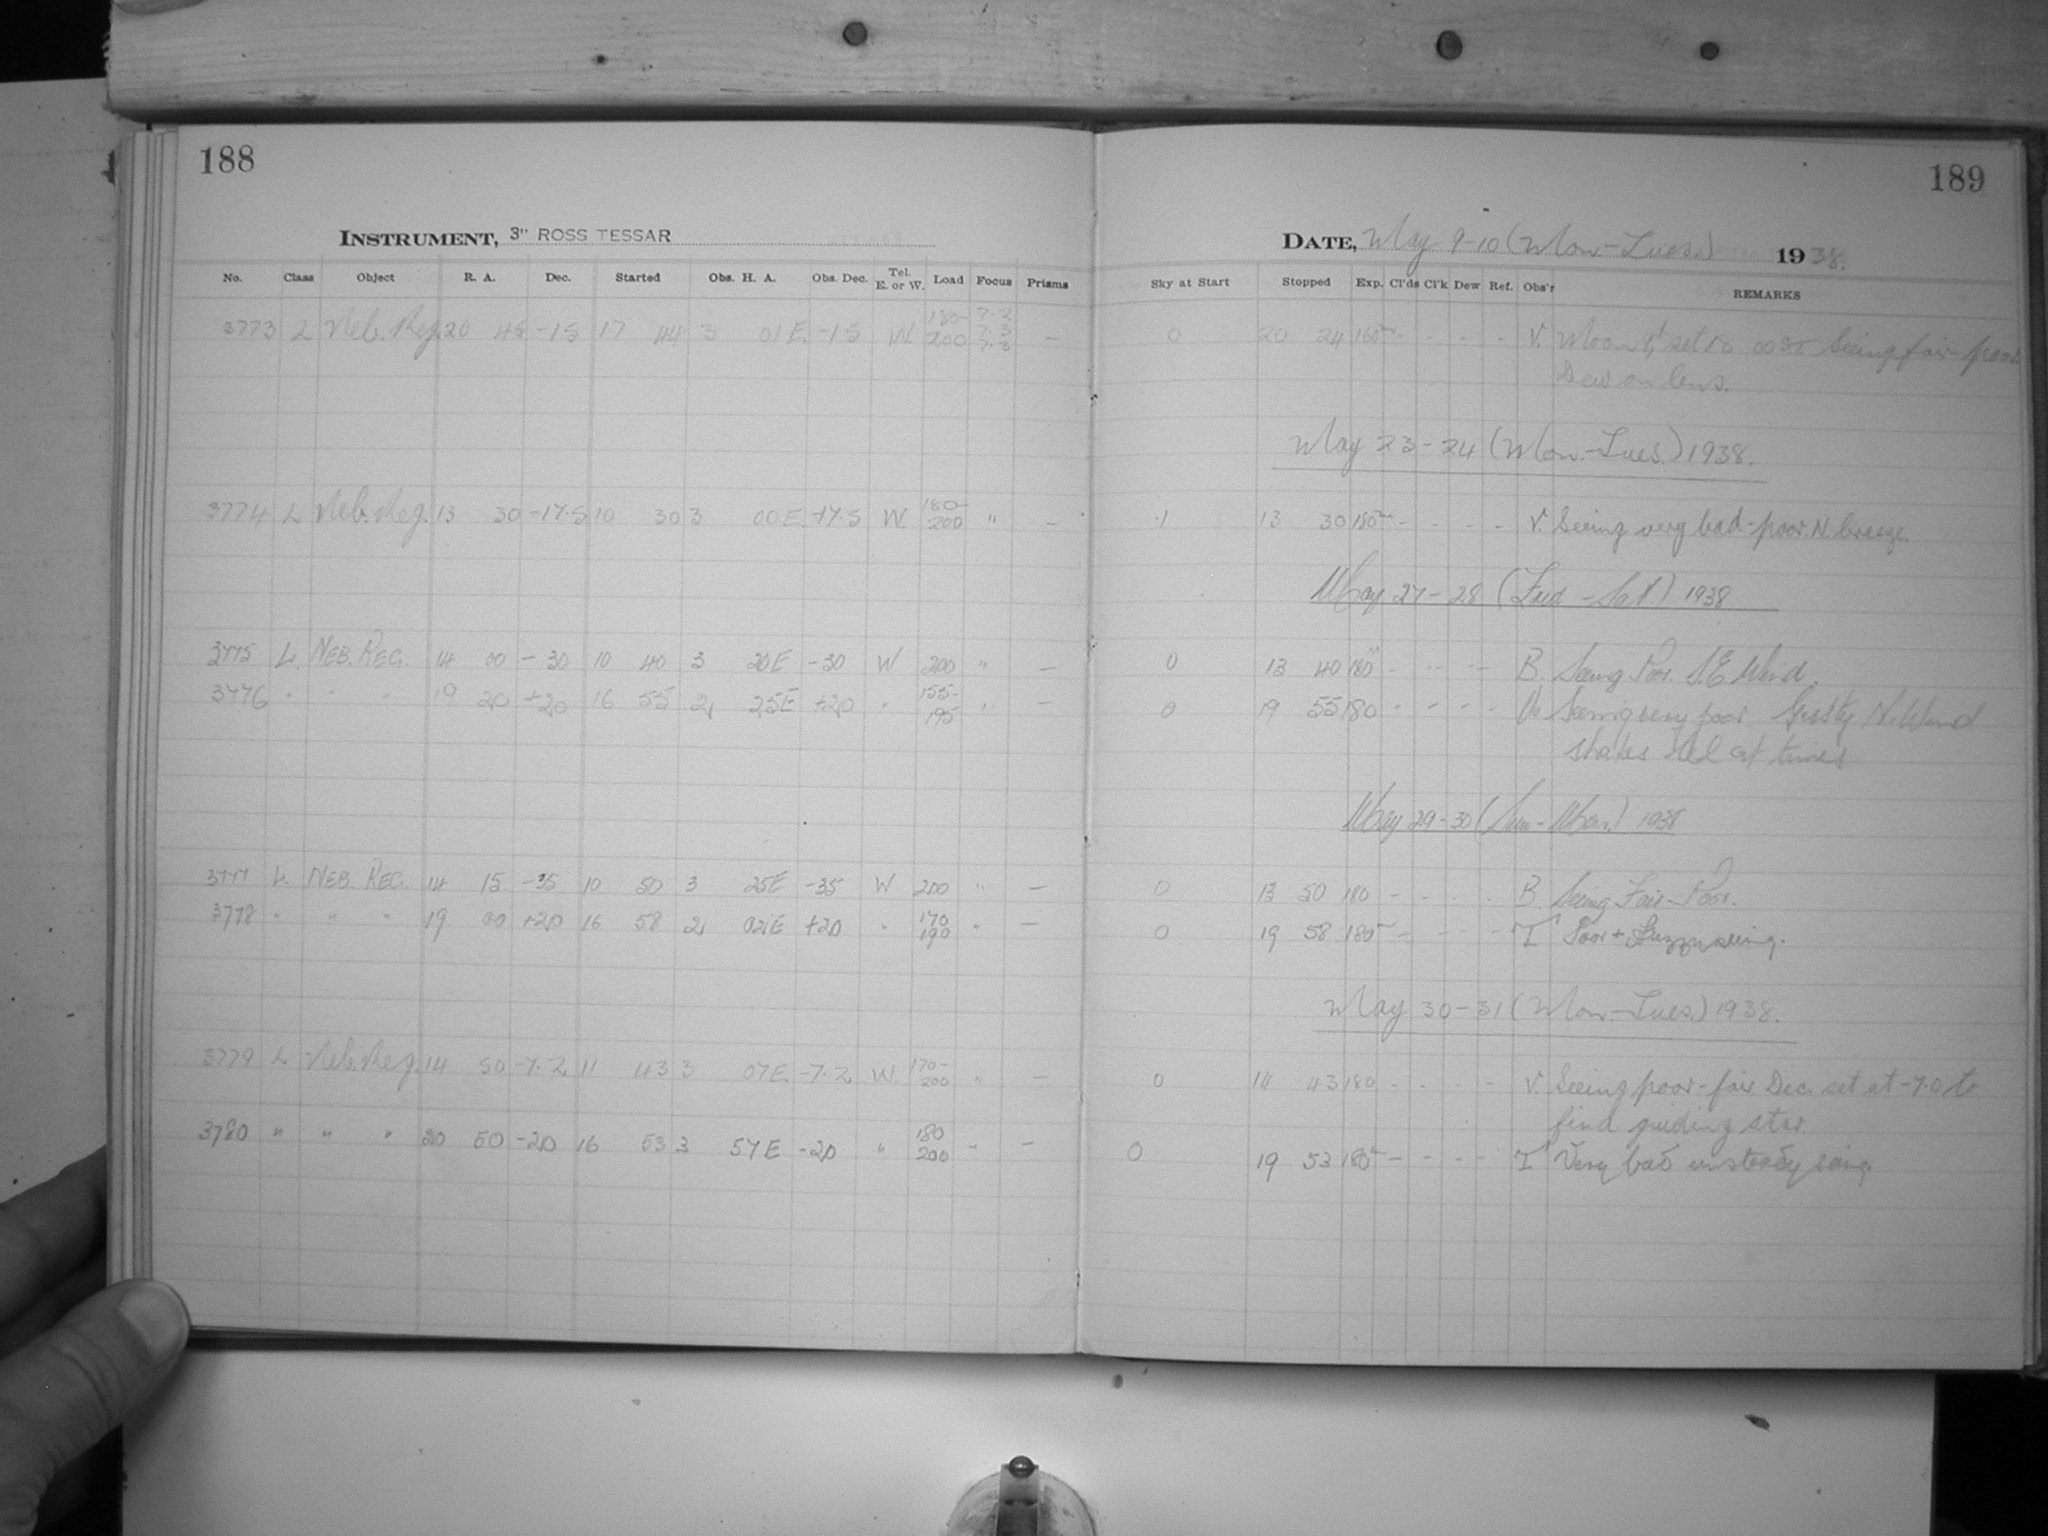 188
INSTRUMENT, 3" ROSS TESSAR
No. Class Object R. A. Dec. Started Obs. H. A. Obs. Dec. Tel. E. or W. Load Focus Prisms
3773 L Neb. Reg. 20 45 -15 17 44 3 01 E -15 W. 180-200 7.3 —
3774 L Neb. Reg. 13 30 -17.5 10 30 3 00 E -17.5 W. 180-200 " —
3775 L. NEB. REG. 14 00 -30 10 40 3 20 E -30 W 200 " —
3776 " " " 19 20 +20 16 55 2 25E +20 " 155-195 " —
3777 L. NEB. REG. 14 15 -35 10 50 3 25E -35 W 200 " —
3778 " " " 19 00 +20 16 58 2 02E +20 " 170 190 " —
3779 L Neb. Reg. 14 50 -7.2 11 43 3 07E -7.2 W. 170-200 " —
3780 " " " 20 50 -20 16 53 3 57 E -20 " 180 200 " —
189
DATE, May 9-10 (Mon-Tues.) 1938.
Sky at Start Stopped Exp. Cl'ds Cl'k Dew Ref. Obs'r REMARKS
0 20 24 160 - - - - V. Moon set 18 00 ST. Seeing fair-poor.
Dew on lens.
May 23-24 (Mon.-Tues.) 1938.
-1 13 30 180 - - - - V. Seeing very bad-poor. N. breeze.
May 27-28 (Frid-Sat.) 1938
0 13 40 180 - - - - B. Seeing Poor. S.E Wind.
0 19 55 180 - - - - Seeing very poor. Gusty N. Wind
shakes tel at times
May 29-30 (Sun-Mon.) 1938
0 13 50 180 - - - - B. Seeing Fair-Poor.
0 19 58 180 - - - - T Poor + Fuzzy seeing.
May 30-31 (Mon.-Tues.) 1938.
0 14 43 180 - - - - V. Seeing poor-fair. Dec. set at -7.0 to
find guiding star.
0 19 53 180 - - - - T Very bad unsteady seeing.